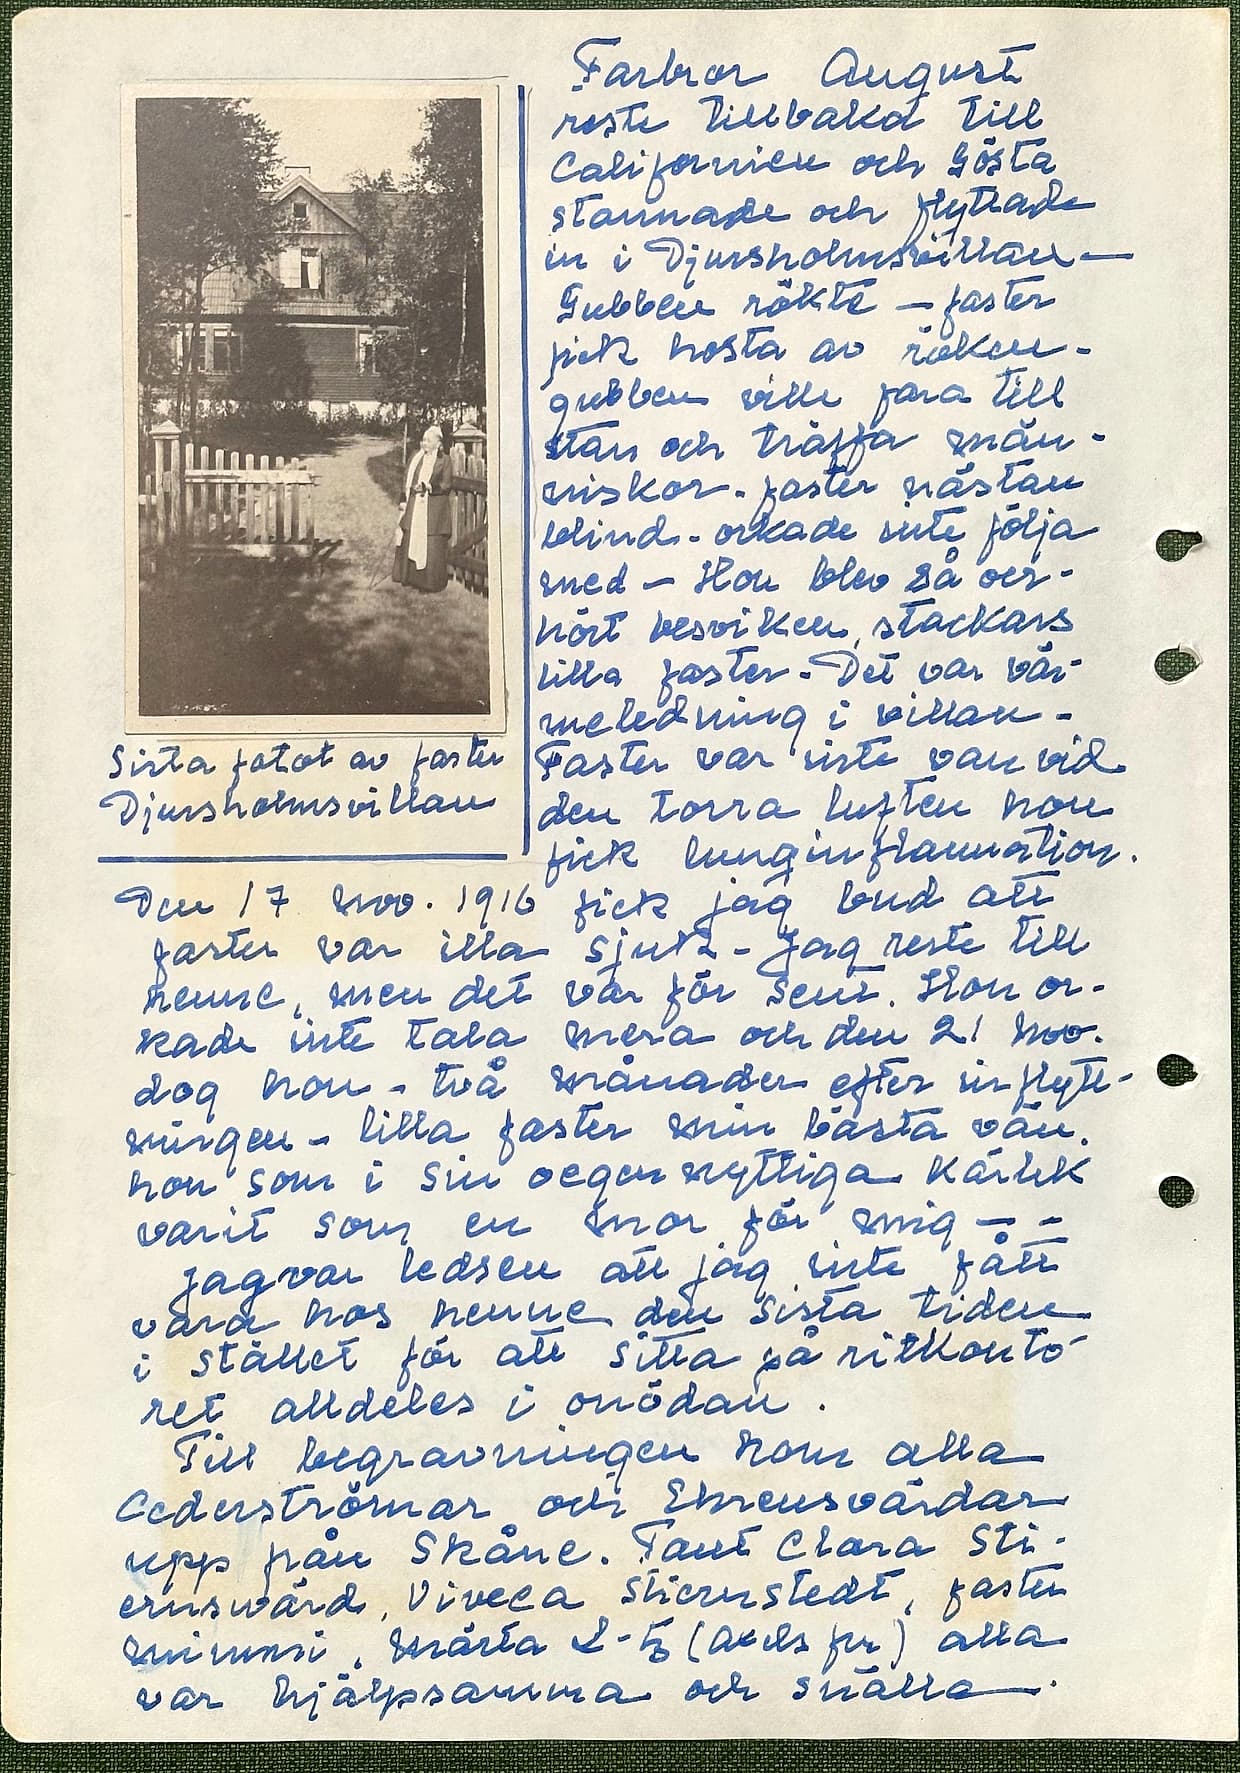 Farbror August
reste tillbaka till
Californien och Gösta
stannade och flyttade
in i Djursholmsvillan —
Gubben rökte — faster
fick hosta av röken -
gubben ville fara till
stan och träffa män-
niskor - faster nästan
blind - orkade inte följa
med — Hon blev så oer-
hört besviken, stackars
lilla faster - Det var vär-
meledning i villan -
Faster var inte van vid
den torra luften hon
fick lunginflammation.
Sista fotot av faster
Djursholmsvillan
Den 17 nov. 1916 fick jag bud att
faster var illa sjuk - Jag reste till
henne, men det var för sent. Hon or-
kade inte tala mera och den 21 nov.
dog hon - två månader efter inflytt-
ningen - lilla faster min bästa vän.
hon som i sin oegennyttiga kärlek
varit som en mor för mig — -
Jag var ledsen att jag inte fått
vara hos henne den sista tiden
i stället för att sitta på ritkonto-
ret alldeles i onödan.
Till begravningen kom alla
Cederströmar och Ehrensvärdar
upp från Skåne. Tant Clara Sti-
ernswärd, Viveca Stiernstedt, faster
Mimmi, Märta (Axels fru) alla
var hjälpsamma och snälla —.